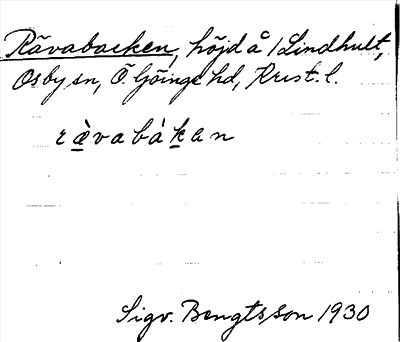 Rävabacken, höjd å 1 Lindhult,
Osby sn, Ö. Göinge hd, Krist. l.
rævabàkan
Sigv. Bengtsson 1930